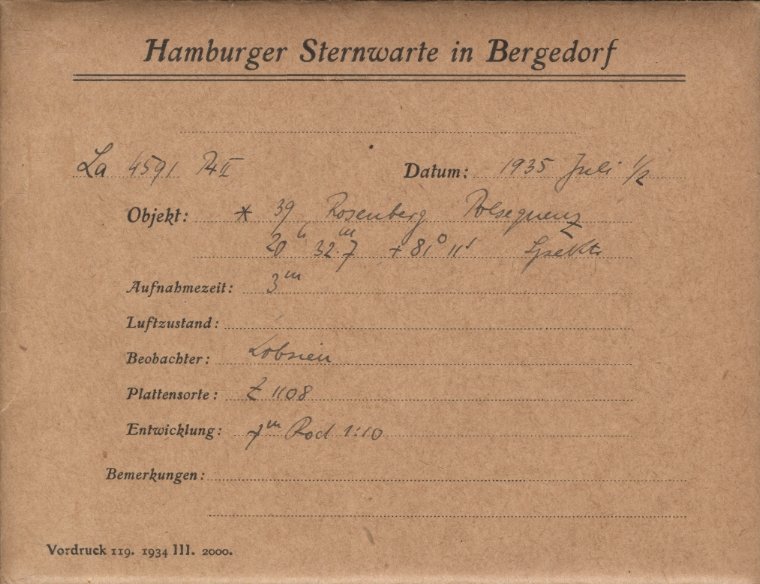 Hamburger Sternwarte in Bergedorf
La 4591 P4II Datum: 1935 Juli 1/2
Objekt: * 39 Rosenberg Polsequenz
20h 32.m7 + 81° 11' Spektr.
Aufnahmezeit: 3m
Luftzustand:
Beobachter: Lobsien
Plattensorte: Z 1108
Entwicklung: 7m Rod 1:10
Bemerkungen:
Vordruck 119. 1934 III. 2000.